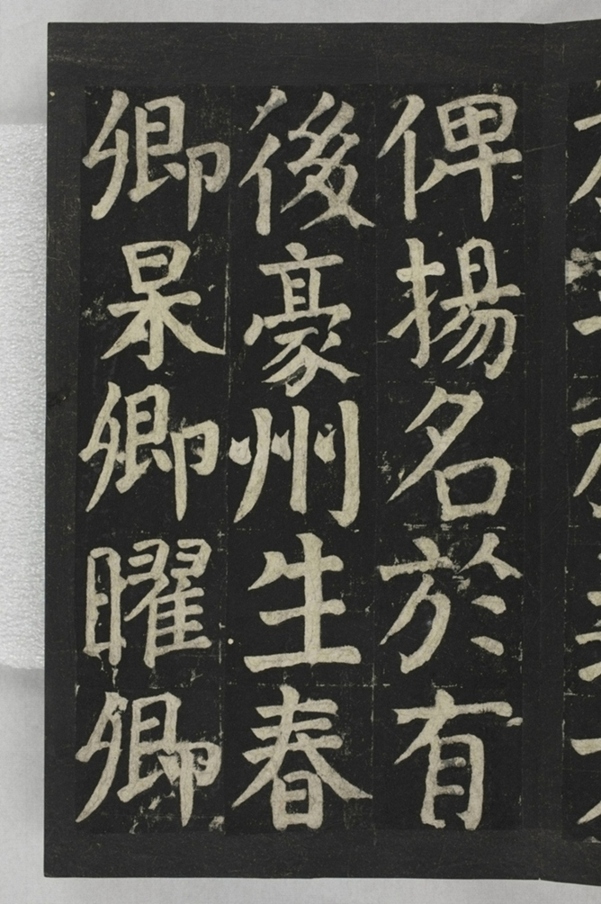 俾揚名於有
後豪州生春
卿杲卿曜卿